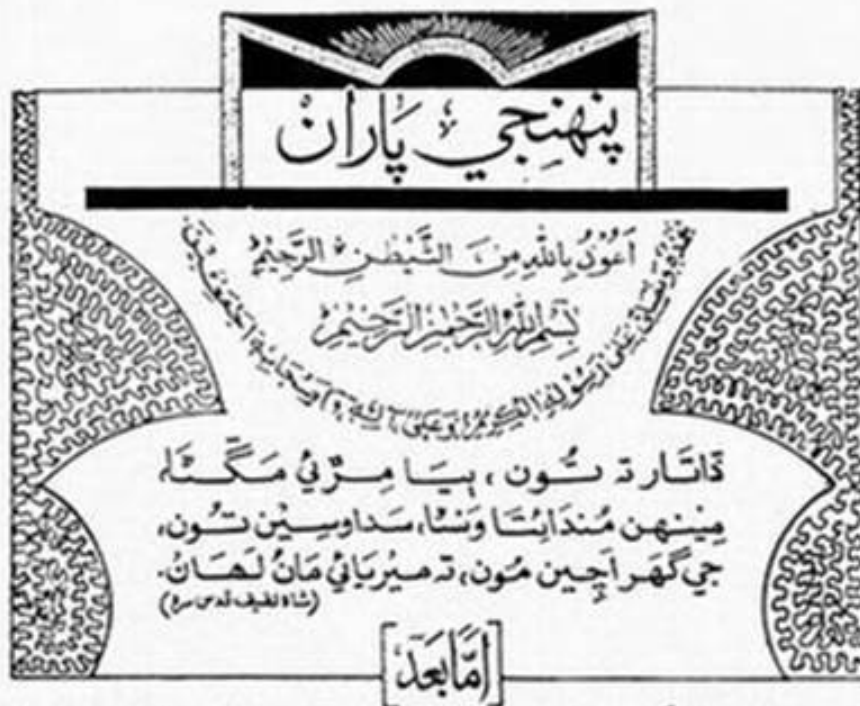 پنهنجي پاران
اَعُوْذُ بِاللّٰهِ مِنَ الشَّيْطٰنِ الرَّجِيْمِ
بِسْمِ اللهِ الرَّحْمٰنِ الرَّحِيْمِ
نحمده ونصلي علىٰ رسوله الكريم وعلىٰ آله واصحابه اجمعين
ڏاتار تہ تُون ، ٻيا مِڙئي مَگڻا،
مِينهن مُندائتا وَسڻا، سَدا وسين تُون،
جي گهر اَچين مُون، تہ ميريائي مانُ لَهان.
(شاه لطيف قدس سره)
[اَمَّا بَعد]